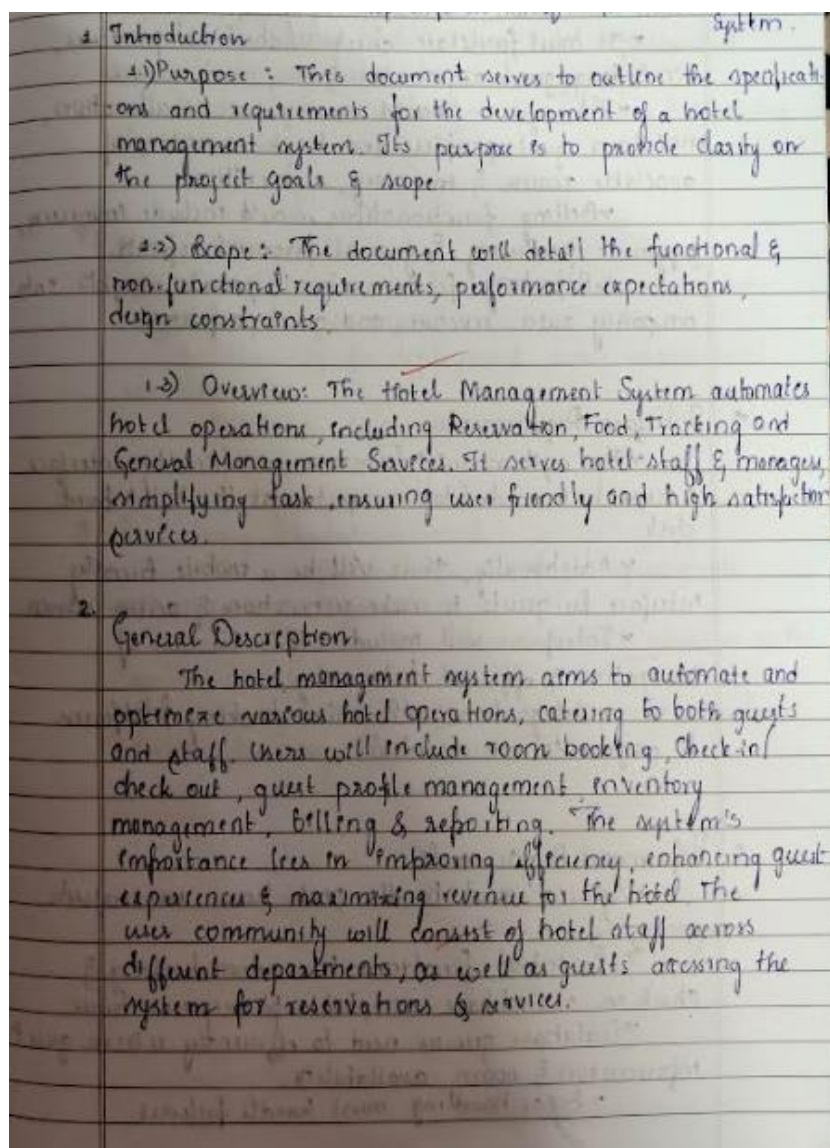 System.
1. Introduction
1.1) Purpose : This document serves to outline the specificati-
ons and requirements for the development of a hotel
management system. Its purpose is to provide clarity on
the project goals & scope
1.2) Scope : The document will detail the functional &
non-functional requirements, performance expectations,
design constraints
1.3) Overview: The Hotel Management System automates
hotel operations, including Reservation, Food, Tracking and
General Management Services. It serves hotel staff & managers,
simplifying task ensuring user friendly and high satisfaction
services.
2.
General Description
The hotel management system aims to automate and
optimize various hotel operations, catering to both guests
and staff. Users will include room booking, Check in/
check out, guest profile management, inventory
management, billing & reporting. The system's
importance lies in improving efficiency, enhancing guest
experiences & maximizing revenue for the hotel. The
user community will consist of hotel staff across
different departments, as well as guests accessing the
system for reservations & services.